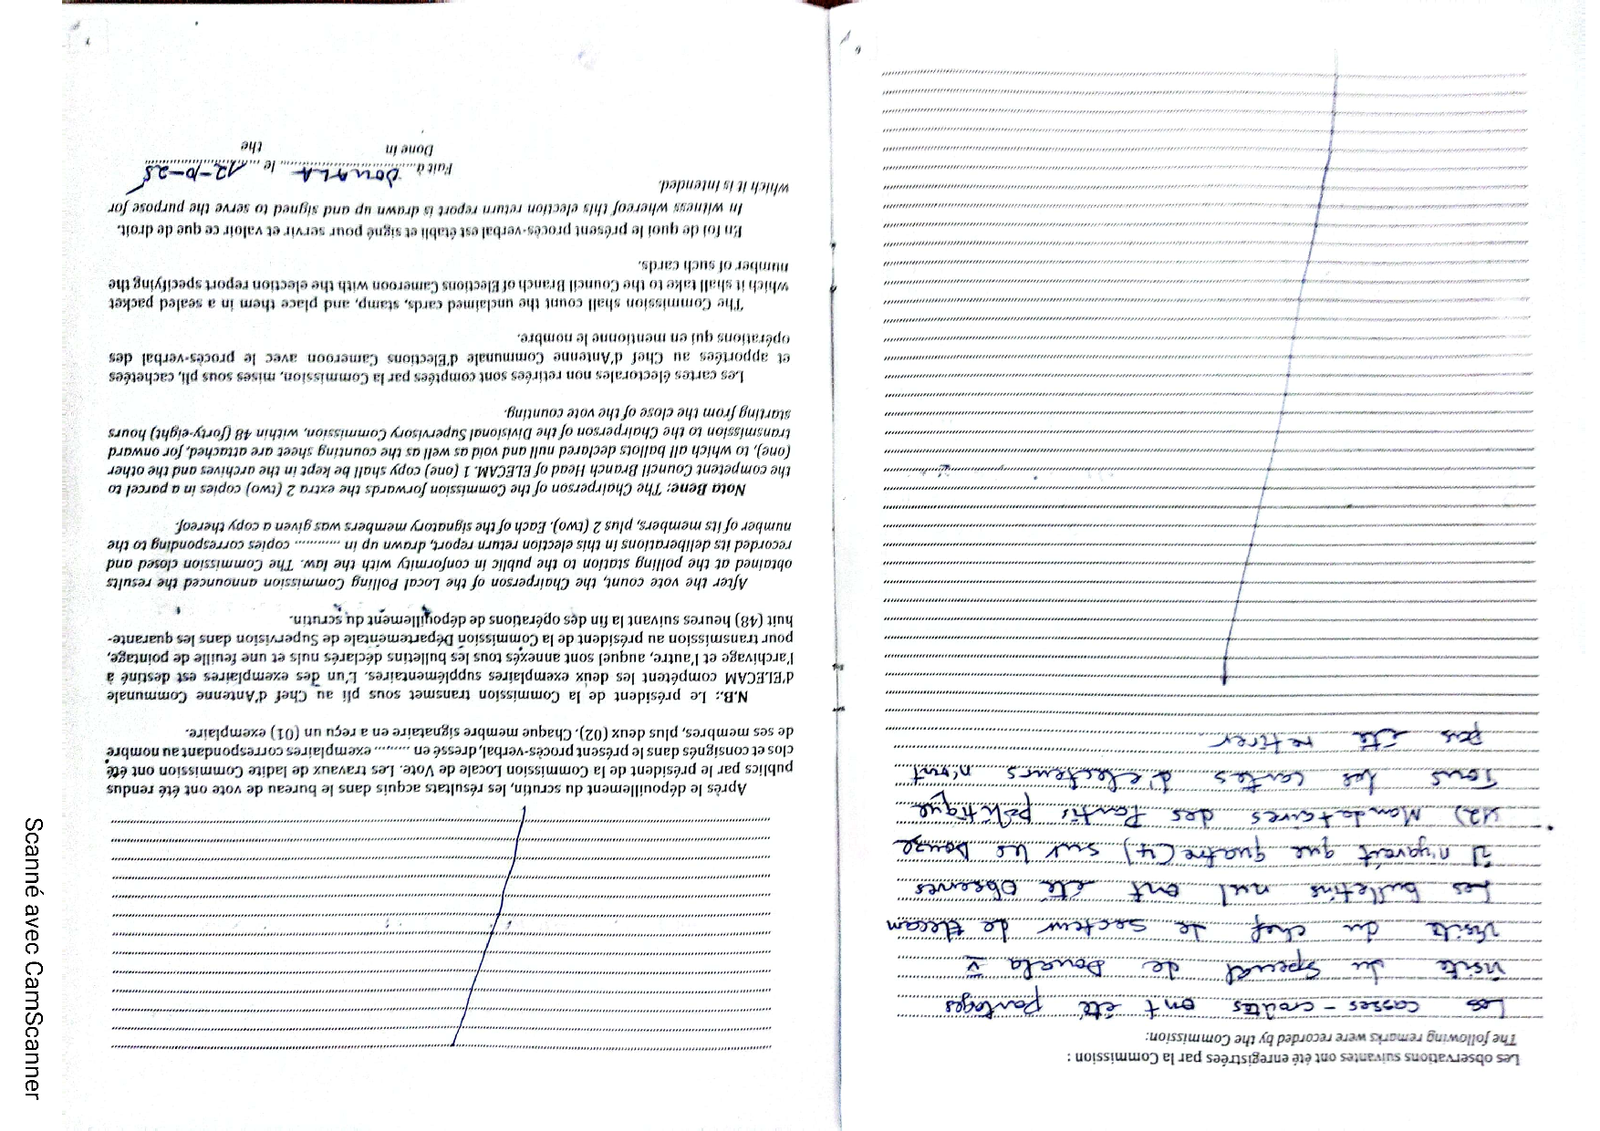 Les observations suivantes ont été enregistrées par la Commission :
The following remarks were recorded by the Commission:
Les casses-croutes ont été partages
visite du Special de Douala V
visite du chef de secteur de Elecam
Les bulletins nul ont été observés
il n'yavait que quatre (4) sur les Douze
(12) Mandataires des Partis pôlitique
Tous les cartes d'electeurs n'ont
pas été retirer
Après le dépouillement du scrutin, les résultats acquis dans le bureau de vote ont été rendus
publics par le président de la Commission Locale de Vote. Les travaux de ladite Commission ont été
clos et consignés dans le présent procès-verbal, dressé en ........... exemplaires correspondant au nombre
de ses membres, plus deux (02). Chaque membre signataire en a reçu un (01) exemplaire.
N.B.: Le président de la Commission transmet sous pli au Chef d'Antenne Communale
d'ELECAM compétent les deux exemplaires supplémentaires. L'un des exemplaires est destiné à
l'archivage et l'autre, auquel sont annexés tous les bulletins déclarés nuls et une feuille de pointage,
pour transmission au président de la Commission Départementale de Supervision dans les quarante-
huit (48) heures suivant la fin des opérations de dépouillement du scrutin.
After the vote count, the Chairperson of the Local Polling Commission announced the results
obtained at the polling station to the public in conformity with the law. The Commission closed and
recorded its deliberations in this election return report, drawn up in ........... copies corresponding to the
number of its members, plus 2 (two). Each of the signatory members was given a copy thereof.
Nota Bene: The Chairperson of the Commission forwards the extra 2 (two) copies in a parcel to
the competent Council Branch Head of ELECAM. 1 (one) copy shall be kept in the archives and the other
(one), to which all ballots declared null and void as well as the counting sheet are attached, for onward
transmission to the Chairperson of the Divisional Supervisory Commission, within 48 (forty-eight) hours
starting from the close of the vote counting.
Les cartes électorales non retirées sont comptées par la Commission, mises sous pli, cachetées
et apportées au Chef d'Antenne Communale d'Elections Cameroon avec le procès-verbal des
opérations qui en mentionne le nombre.
The Commission shall count the unclaimed cards, stamp, and place them in a sealed packet
which it shall take to the Council Branch of Elections Cameroon with the election report specifying the
number of such cards.
En foi de quoi le présent procès-verbal est établi et signé pour servir et valoir ce que de droit.
In witness whereof this election return report is drawn up and signed to serve the purpose for
which it is intended.
Fait à DOUALA le 12-10-25
Done in the
Scanné avec CamScanner